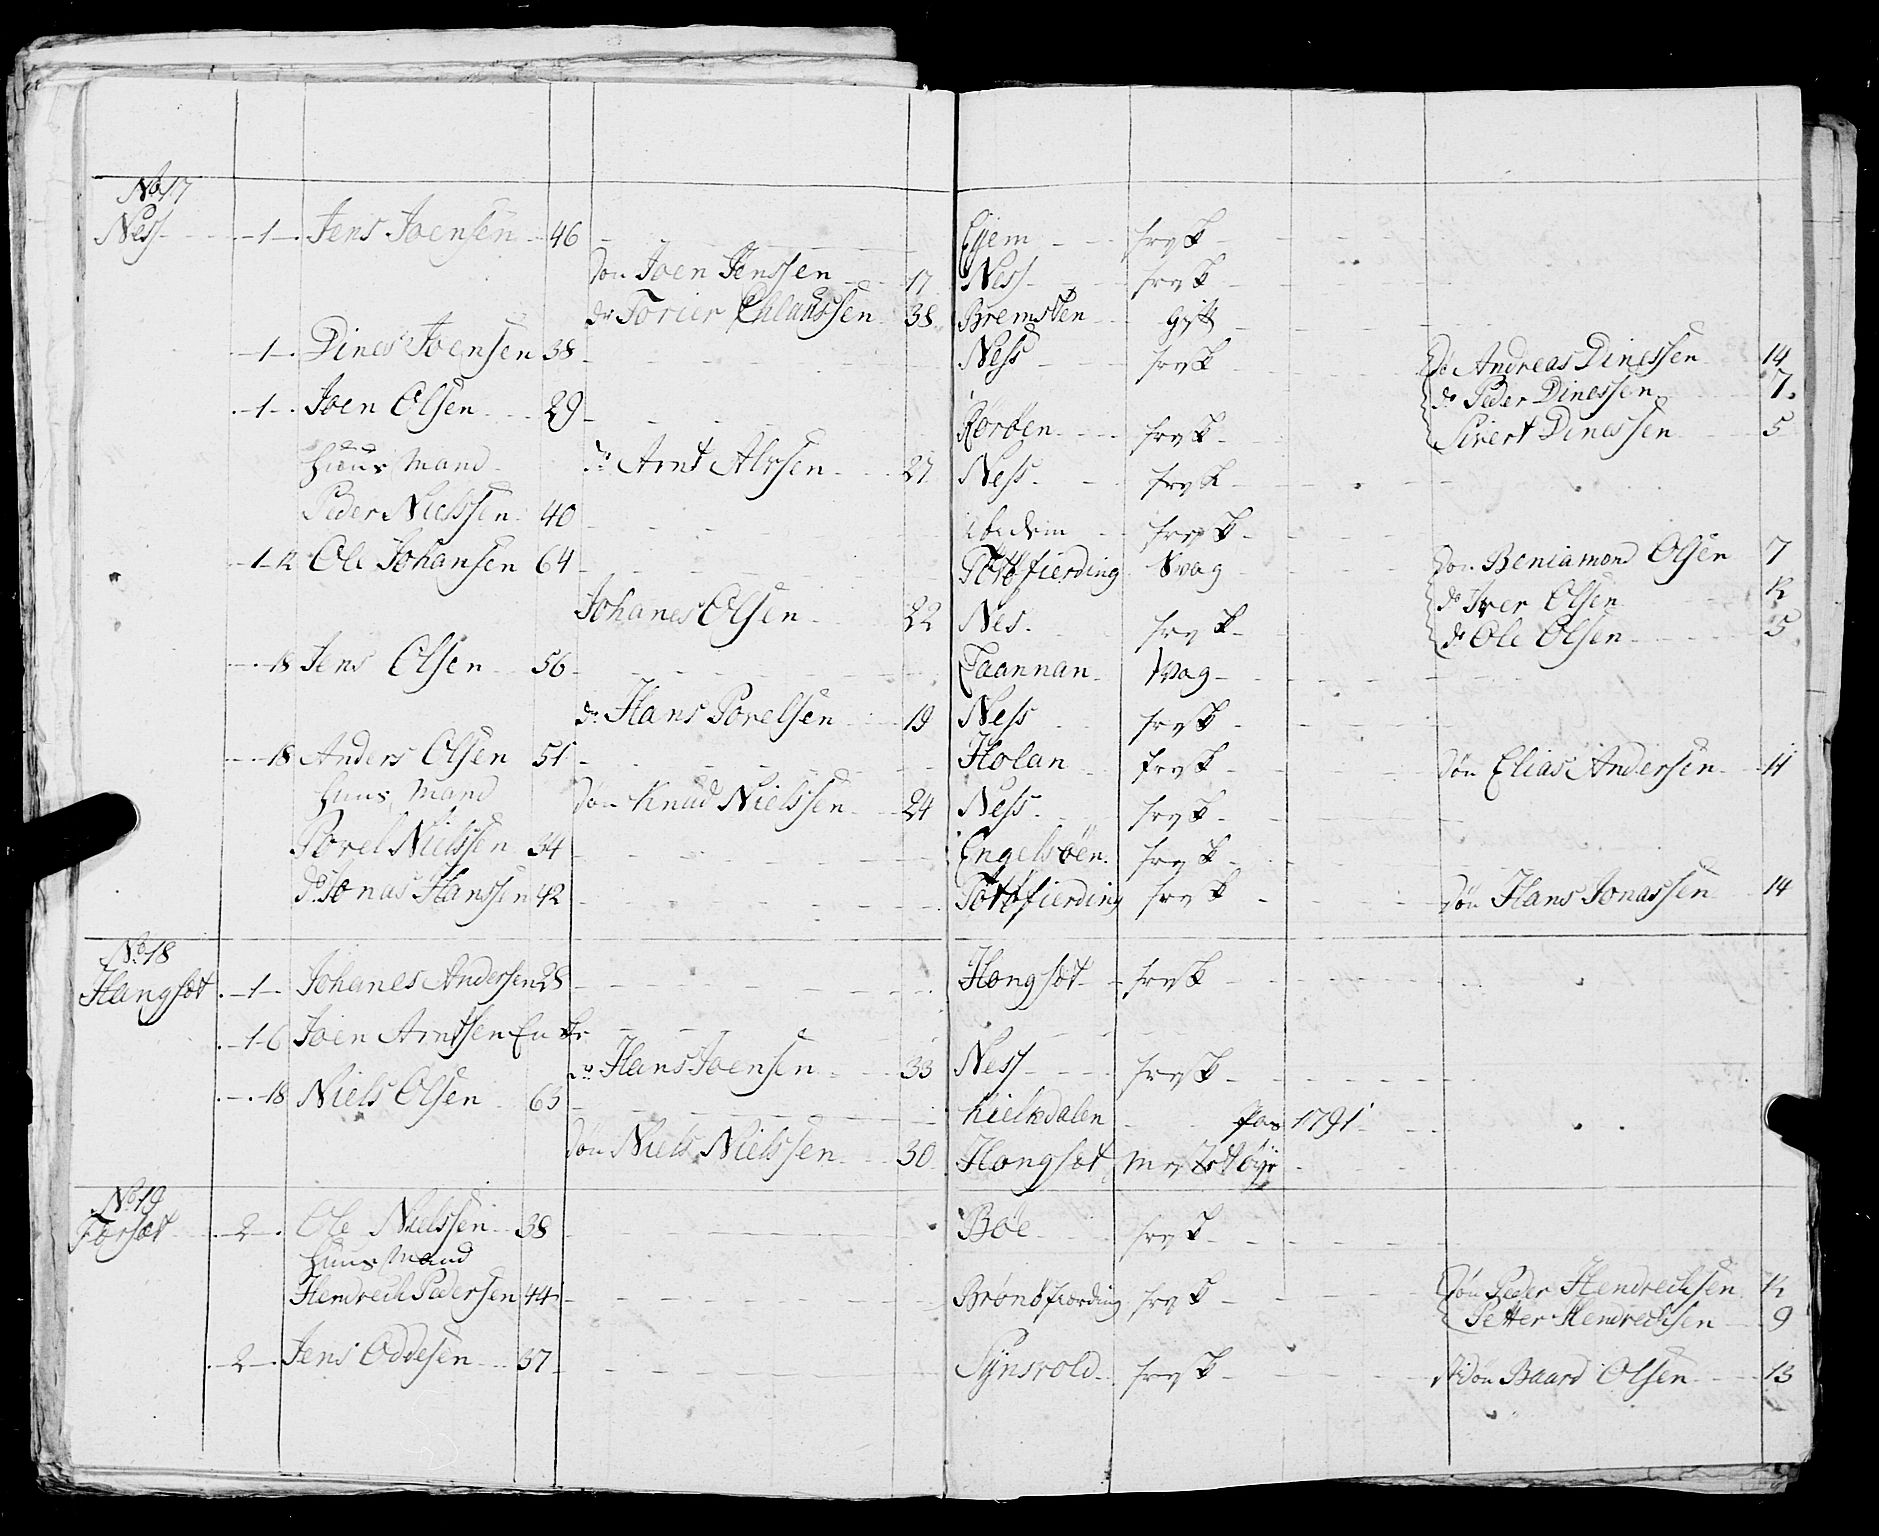 No 17
Ness 1 Jens Joensen 46 Ejem frysk
Søn Joen Jenssen 17 Ness frysk
do Torier Chlaussen 38 Bremsten Gift
1 Dines Joensen 38 Ness frysk do Andreas Dinessen 14
1 Joen Olsen 29 Korben frysk do Peder Dinessen 7
Sivert Dinessen 5
Huus Mand do Arnt Alssen 27 Ness frysk
Peder Nielssen 40 ibidem frysk
12 Ole Johansen 64 Totbfierding Svag Søn Beniamond Olsen 7
Johanes Olsen 22 Nes frysk do Iver Olsen 12
do Ole Olsen 5
18 Jens Olsen 56 Faannan svag
do Hans Porelsen 19 Ness frysk
18 Anders Olsen 51 Holan frysk Søn Elias Andersen 11
Huus Mand Søn Knud Nielssen 24 Ness frysk
Porel Nielssen 34 Engelsøen frysk
do Jonas Hanssen 42 Totbfierding frysk Søn Hans Jonassen 14
No 18
Hangsæt 1 Johanes Andersen 28 Hongsæt frysk
16 Joen Arntsen Enke
do Hans Joensen 33 Ness frysk
18 Niels Olsen 63 Kielkdalen pas 1791
Søn Niels Nielssen 30 Hongsæt
No 19
Forsæt 2 Ole Nielssen 38 Bøe frysk
Huus Mand
Hendrech Pedersen 44 Brønøfiærding frysk Søn Peder Hendrechsen 12
Petter Hendrechsen 9
2 Jens Oddesen 37 Sÿnsvold frysk Baard Olsen 13